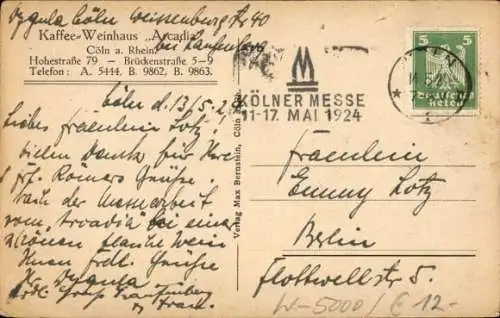 Cöln Weissenburgstr 40
bei Laufenberg
Kaffee-Weinhaus „Arcadia"
Cöln a. Rhein
Hohestraße 79 – Brückenstraße 5–9
Telefon: A. 5444, B. 9862, B. 9863.
Cöln d. 13/5. 24
Liebes Fräulein Lotz!
Vielen Dank für Ihre
Grüsse.
Nach der Messearbeit
vom „Arcadia" bei einer
schönen Flasche Wein
Ihnen frdl. Grüsse
Verlag Max Bernstein, Cöln
KÖLNER MESSE
11-17. MAI 1924
5 5
Deutsches
Reich
Fräulein
Lotz
Berlin
Flottwellstr 5.
W-5000/€ 12-